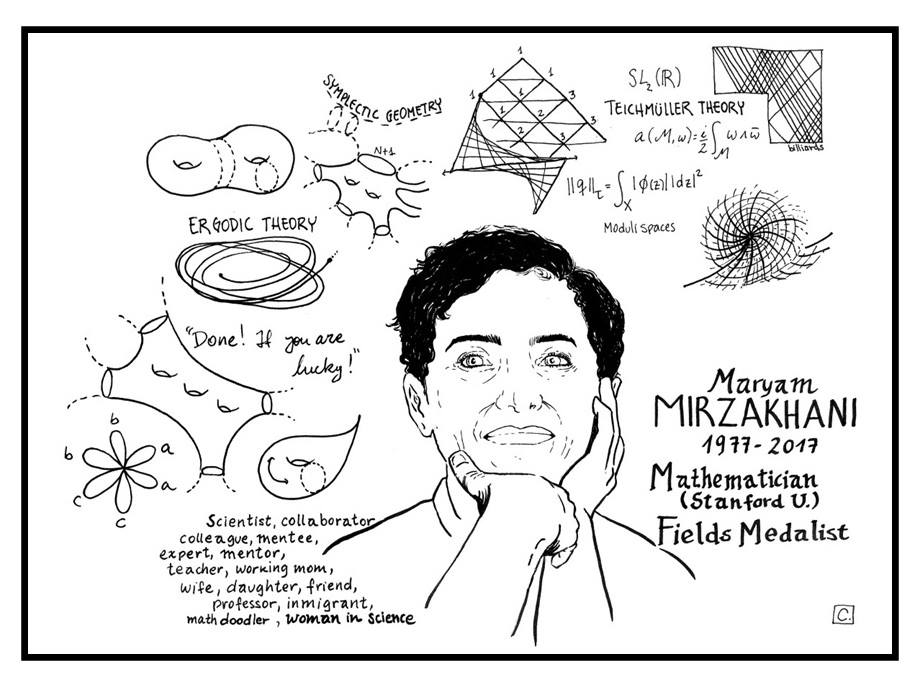 SYMPLECTIC GEOMETRY
N+1
1
1
1
1
1
3
1
2
3
2
2
3
SL₂(ℝ)
TEICHMÜLLER THEORY
a(M,ω)=i/2∫_M ω∧ω̄
billiards
||q||_T=∫_X|ϕ(z)||dz|²
Moduli spaces
ERGODIC THEORY
"Done! If you are
lucky!"
b
b
a
a
c
c
Maryam
MIRZAKHANI
1977-2017
Mathematician
(Stanford U.)
Fields Medalist
Scientist, collaborator
colleague, mentee,
expert, mentor,
teacher, working mom,
wife, daughter, friend,
professor, inmigrant,
math doodler, woman in science
C.